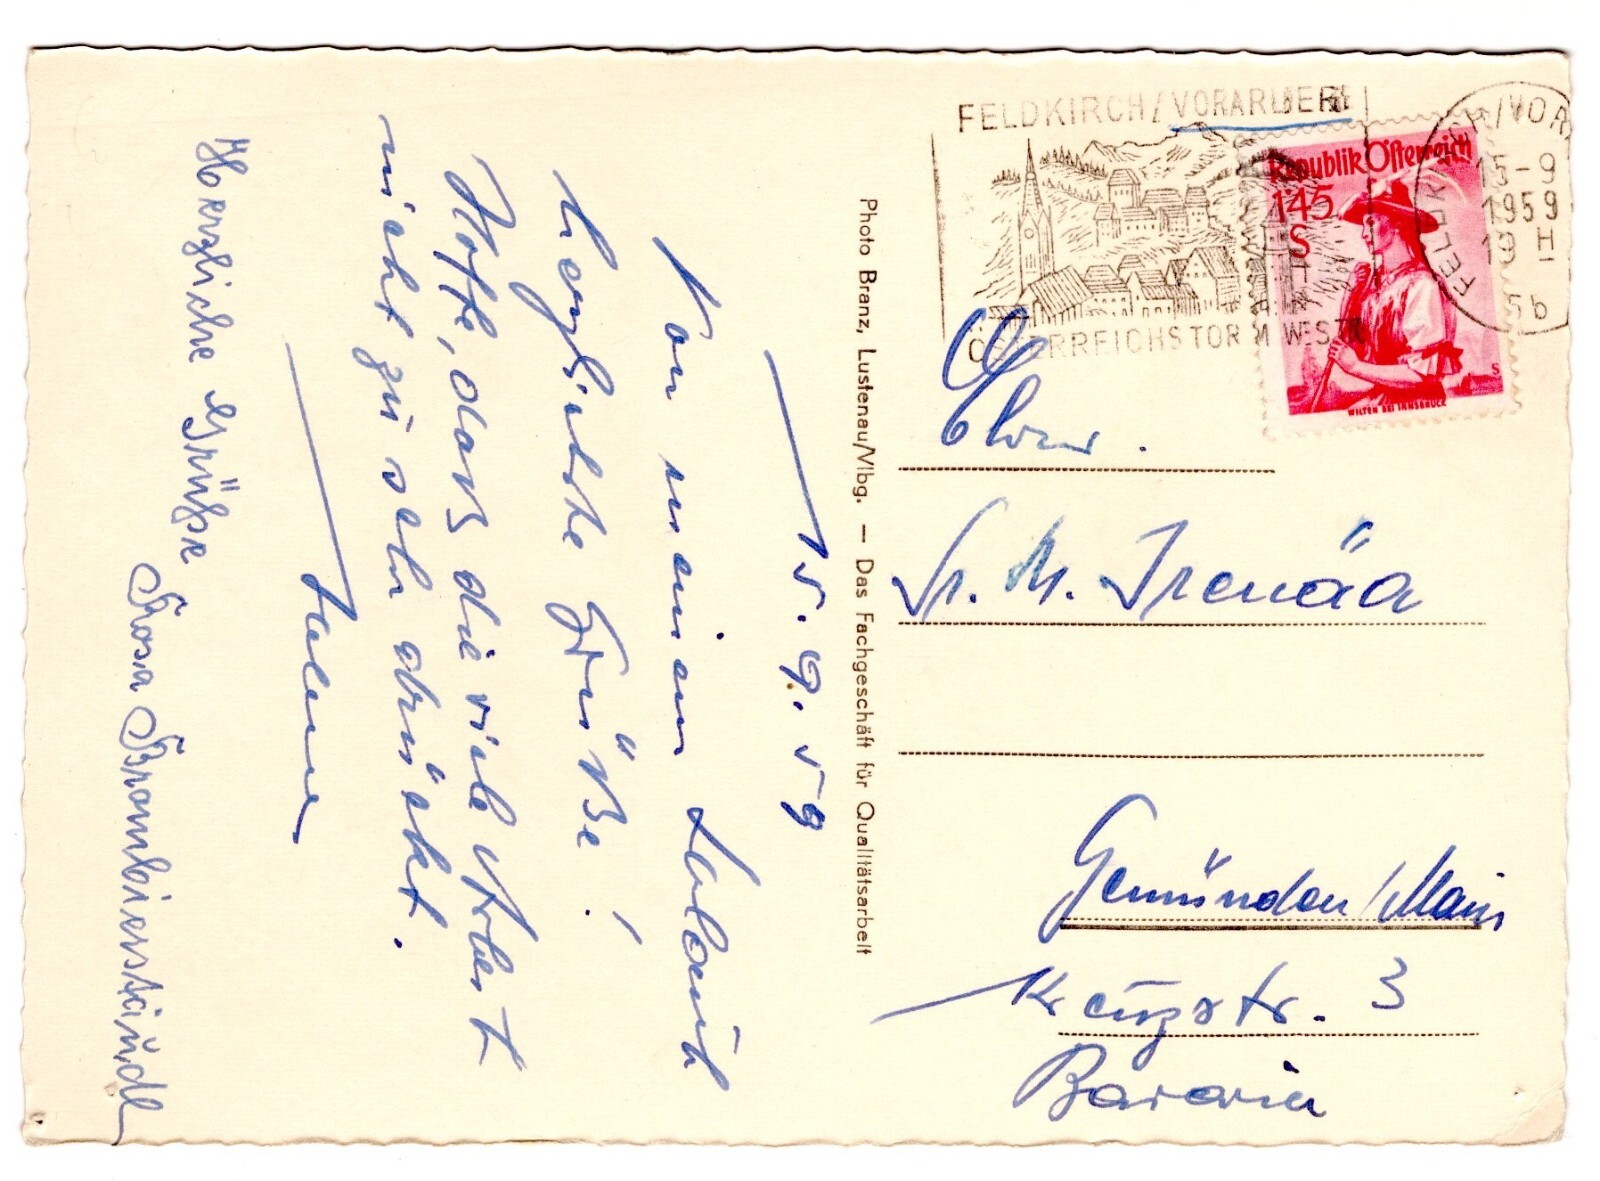 15. 9. 59
Von meinem
herzlichste Grüße!
Hoffe, daß die viele Arbeit
nicht zu sehr drückt.
Herzliche Grüße
Rosa
Photo Branz, Lustenau/Vlbg. — Das Fachgeschäft für Qualitätsarbeit
FELDKIRCH/VORARLBERG
ÖSTERREICHS TOR IM WESTEN
Republik Österreich
1·45
S
WILTEN BEI INNSBRUCK
FELDKIRCH/VOR
15-9
1959
19 H
5b
Ehrw.
Sr. M. Irenäa
Gemünden/Main
Kreuzstr. 3
Bavaria